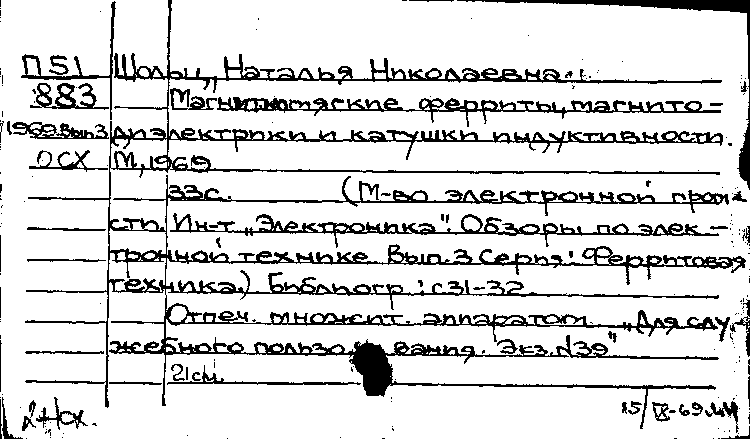 П51 Шольц, Наталья Николаевна.
883 Магнитомягкие ферриты, магнито-
1969 вып.3 диэлектрики и катушки индуктивности.
ОСХ М, 1969
33с. (М-во электронной пром-
сти. Ин-т "Электроника". Обзоры по элек-
тронной технике. Вып. 3 Серия: Ферритовая
техника.) Библиогр: с31-32.
Отпеч. множит. аппаратом. "Для слу-
жебного пользования. Экз. №39"
21см.
15/IX-69